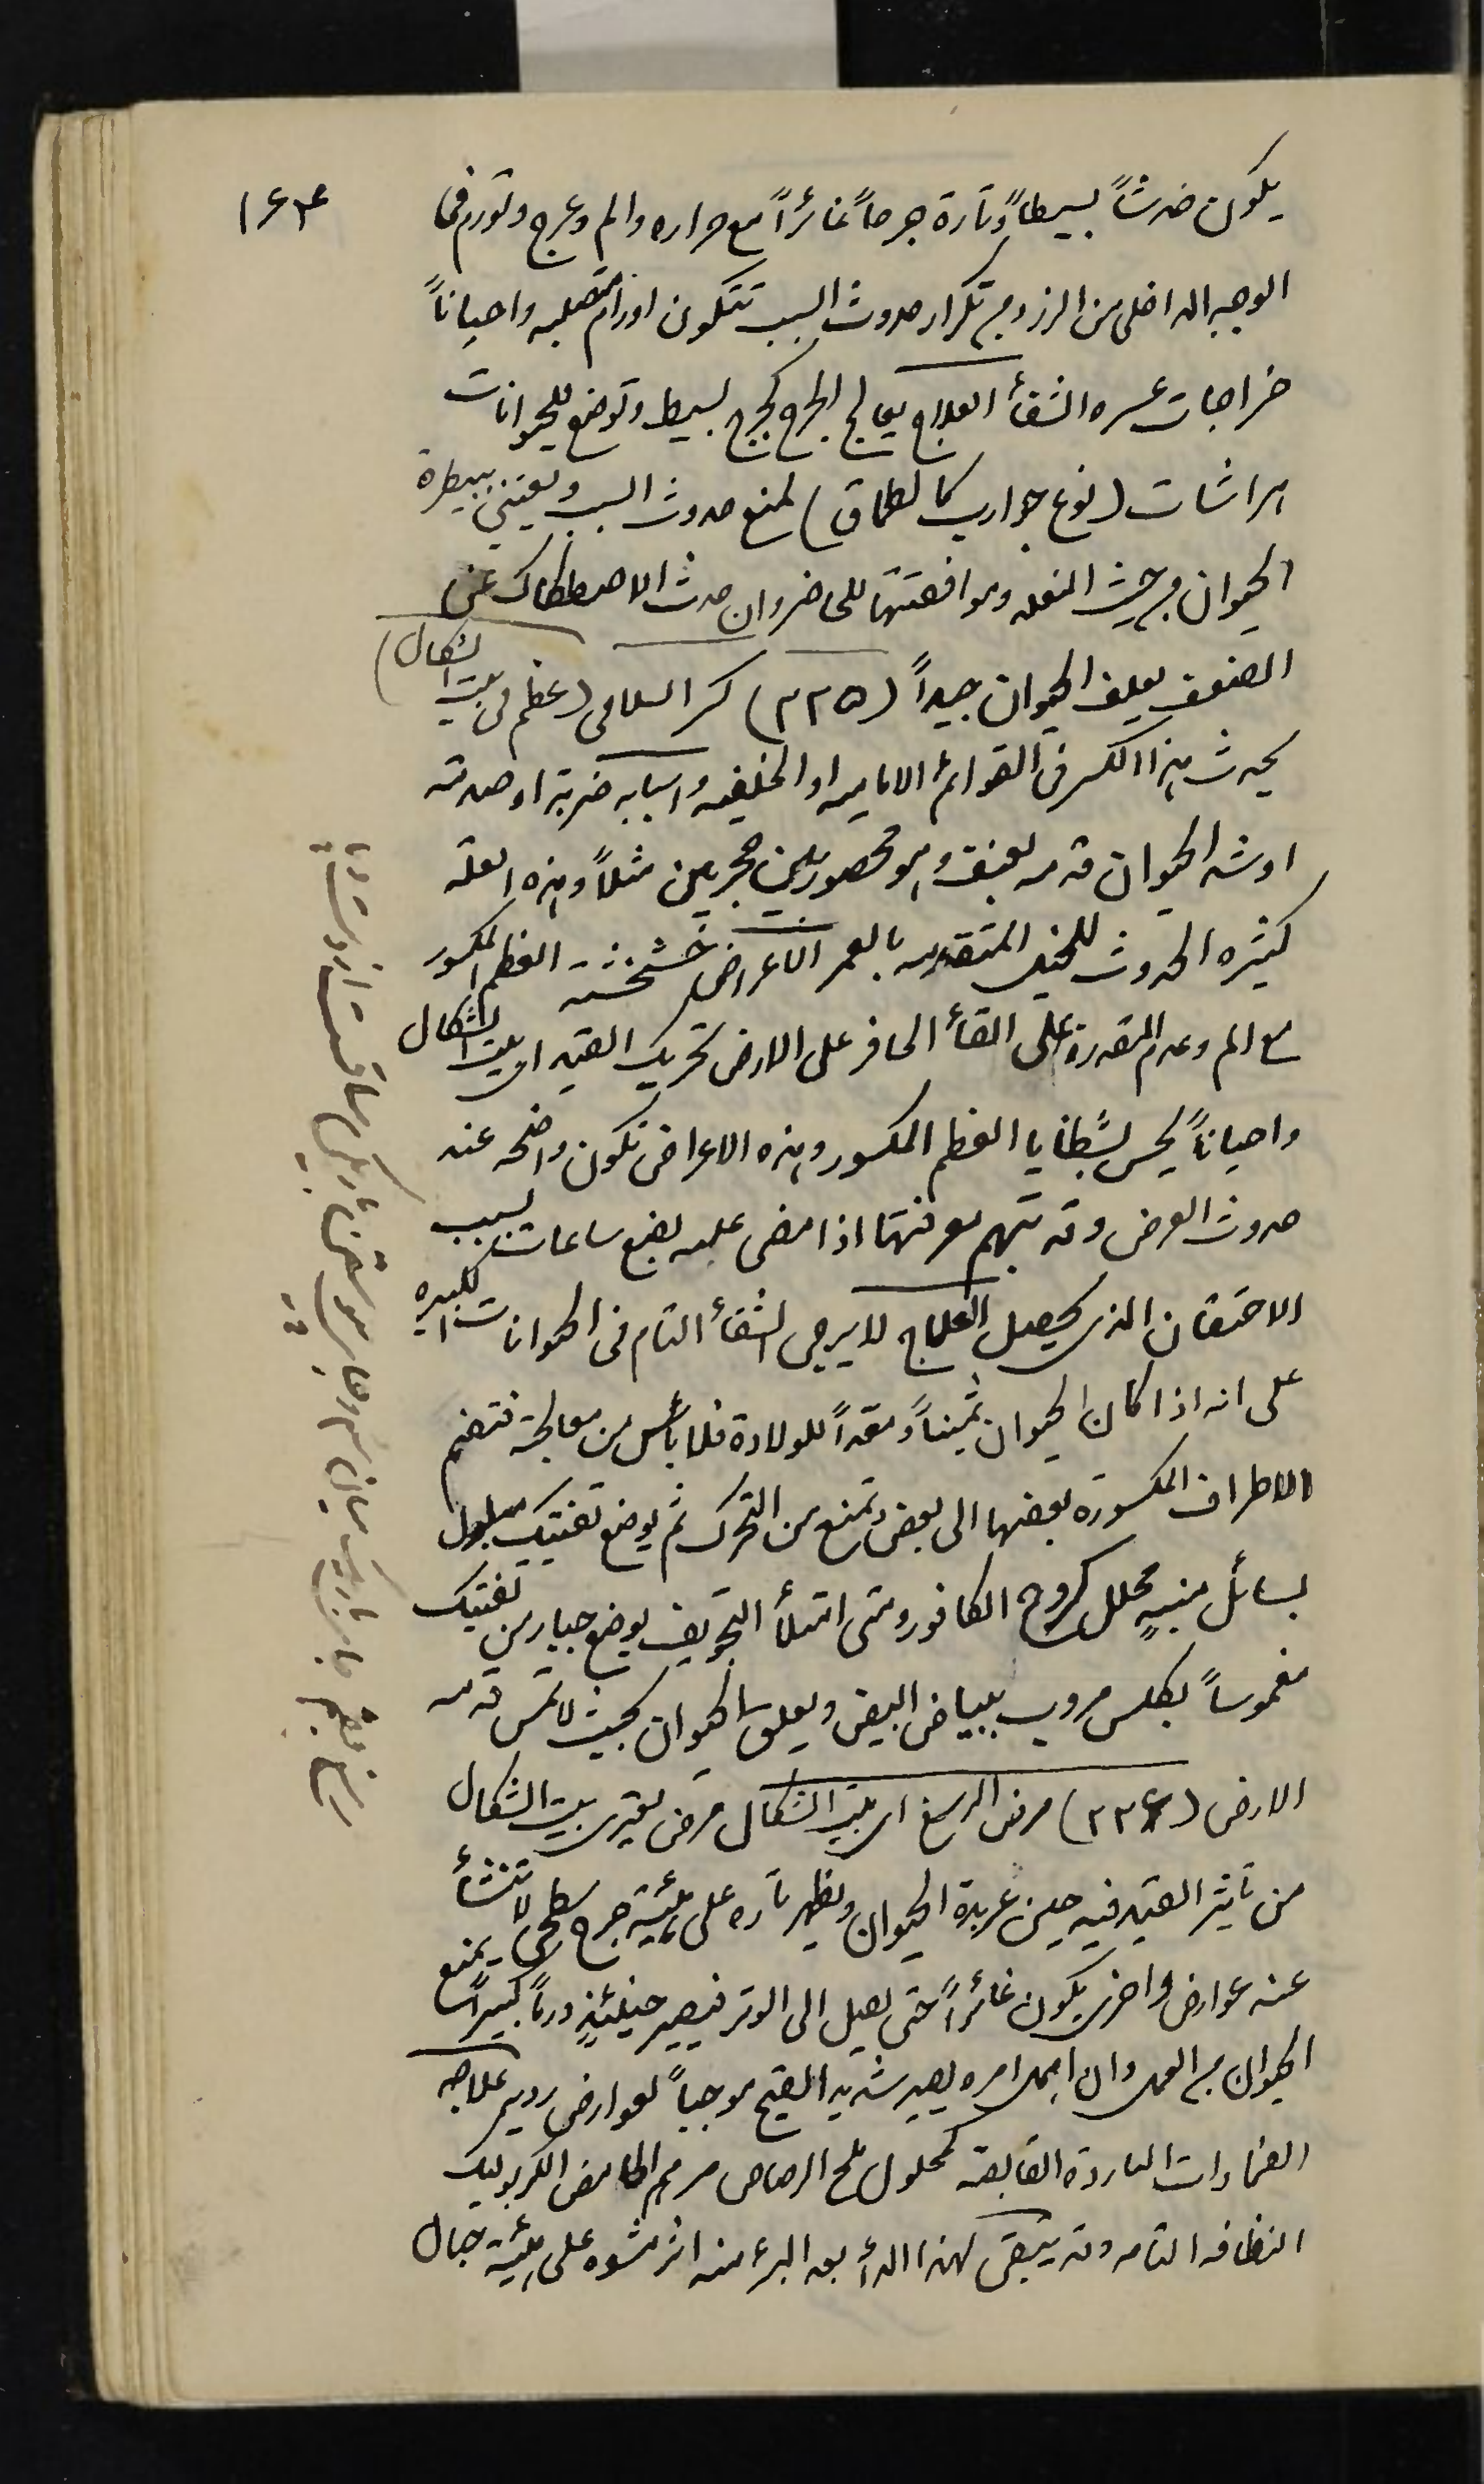 ١٦٣
يكون خدشاً بسيطاً وتارة جرحاً غائراً مع حراره والم وعرج وتورم في
الوجه الداخلي من الرز ومع تكرار حدوث السبب تتكون اورام صلبه واحياناً
خراجات عسره الشفأ العلاج يعالج الجرح كجرح بسيط وتوضع للحيوانات
هراشات (نوع جوارب كالطماق) لمنع حدوث السبب ويعتنى ببيطرة
الحيوان من حيث النعله وموافقتها للحافر وان حدث الاصطكاك عن
الضعف يعلف الحيوان جيداً (٢٢٥) كسر السلامى (عظم في بيت الشكال)
يحدث هذا الكسر في القوائم الاماميه او الخلفيه واسبابه ضربة او صدمه
او شد الحيوان قدمه بعنف وهو محصور بين حجرين مثلاً وهذه العله
كثيره الحدوث للخيل المتقدمه بالعمر الاعراض خشخشة العظم المكسور
مع الم وعدم المقدرة على القأ الحافر على الارض تحريك القيد اي بيت الشكال
واحياناً يحس بشظايا العظم المكسور وهذه الاعراض تكون واضحه عند
حدوث العرض وقد تبهم معرفتها اذا مضى عليه بضع ساعات بسبب
الاحتقان الذي يحصل العلاج لا يرجى الشفأ التام في الحيوانات الكبيره
على انه اذا كان الحيوان ثميناً ومعداً للولادة فلا بأس من معالجته فتضم
الاطراف المكسورة بعضها الى بعض وتمنع من التحرك ثم يوضع تفتيك مبلول
بسائل منبه محلل كروح الكافور ومتى امتلأ التجويف يوضع جبار من تفتيك
مغموساً بكلس مروب ببياض البيض ويعلق الحيوان بحيث لا تمس قدمه
الارض (٢٢٦) مرض الرسغ اي بيت الشكال مرض يعتري بيت الشكال
من تأثير القيد فيه حين عربدة الحيوان ويظهر تاره على هيئة جرح سطحي لا تنشأ
عنه عوارض واخرى يكون غائراً حتى يصل الى الوتر فيصير حينئذٍ ورماً كبيراً يمنع
الحيوان من العمل وان اهمل امره يصير شديد القيح موجباً لعوارض رديه علاجه
الضمادات الباردة القابضه كمحلول ملح الرصاص مرهم الحامض الكربوليك
النظافه التامه وقد يتبقى لهذا الدأ بعد البرء منه اثر مشوه على هيئة حبال